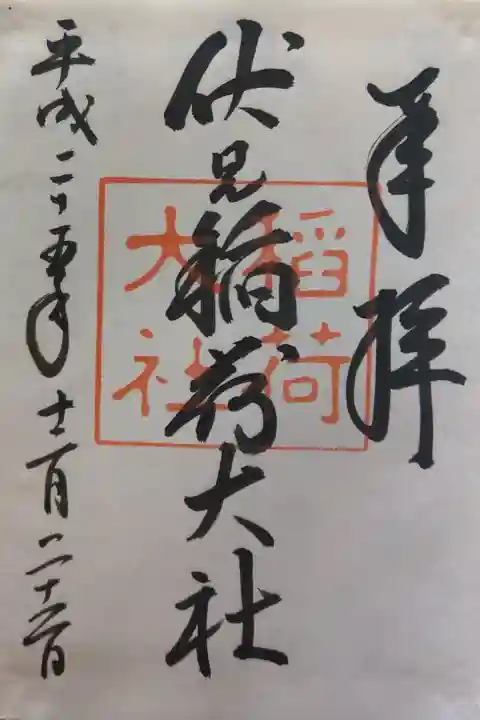 奉拝
伏見稲荷大社
稲荷
大社
平成二十五年十二月